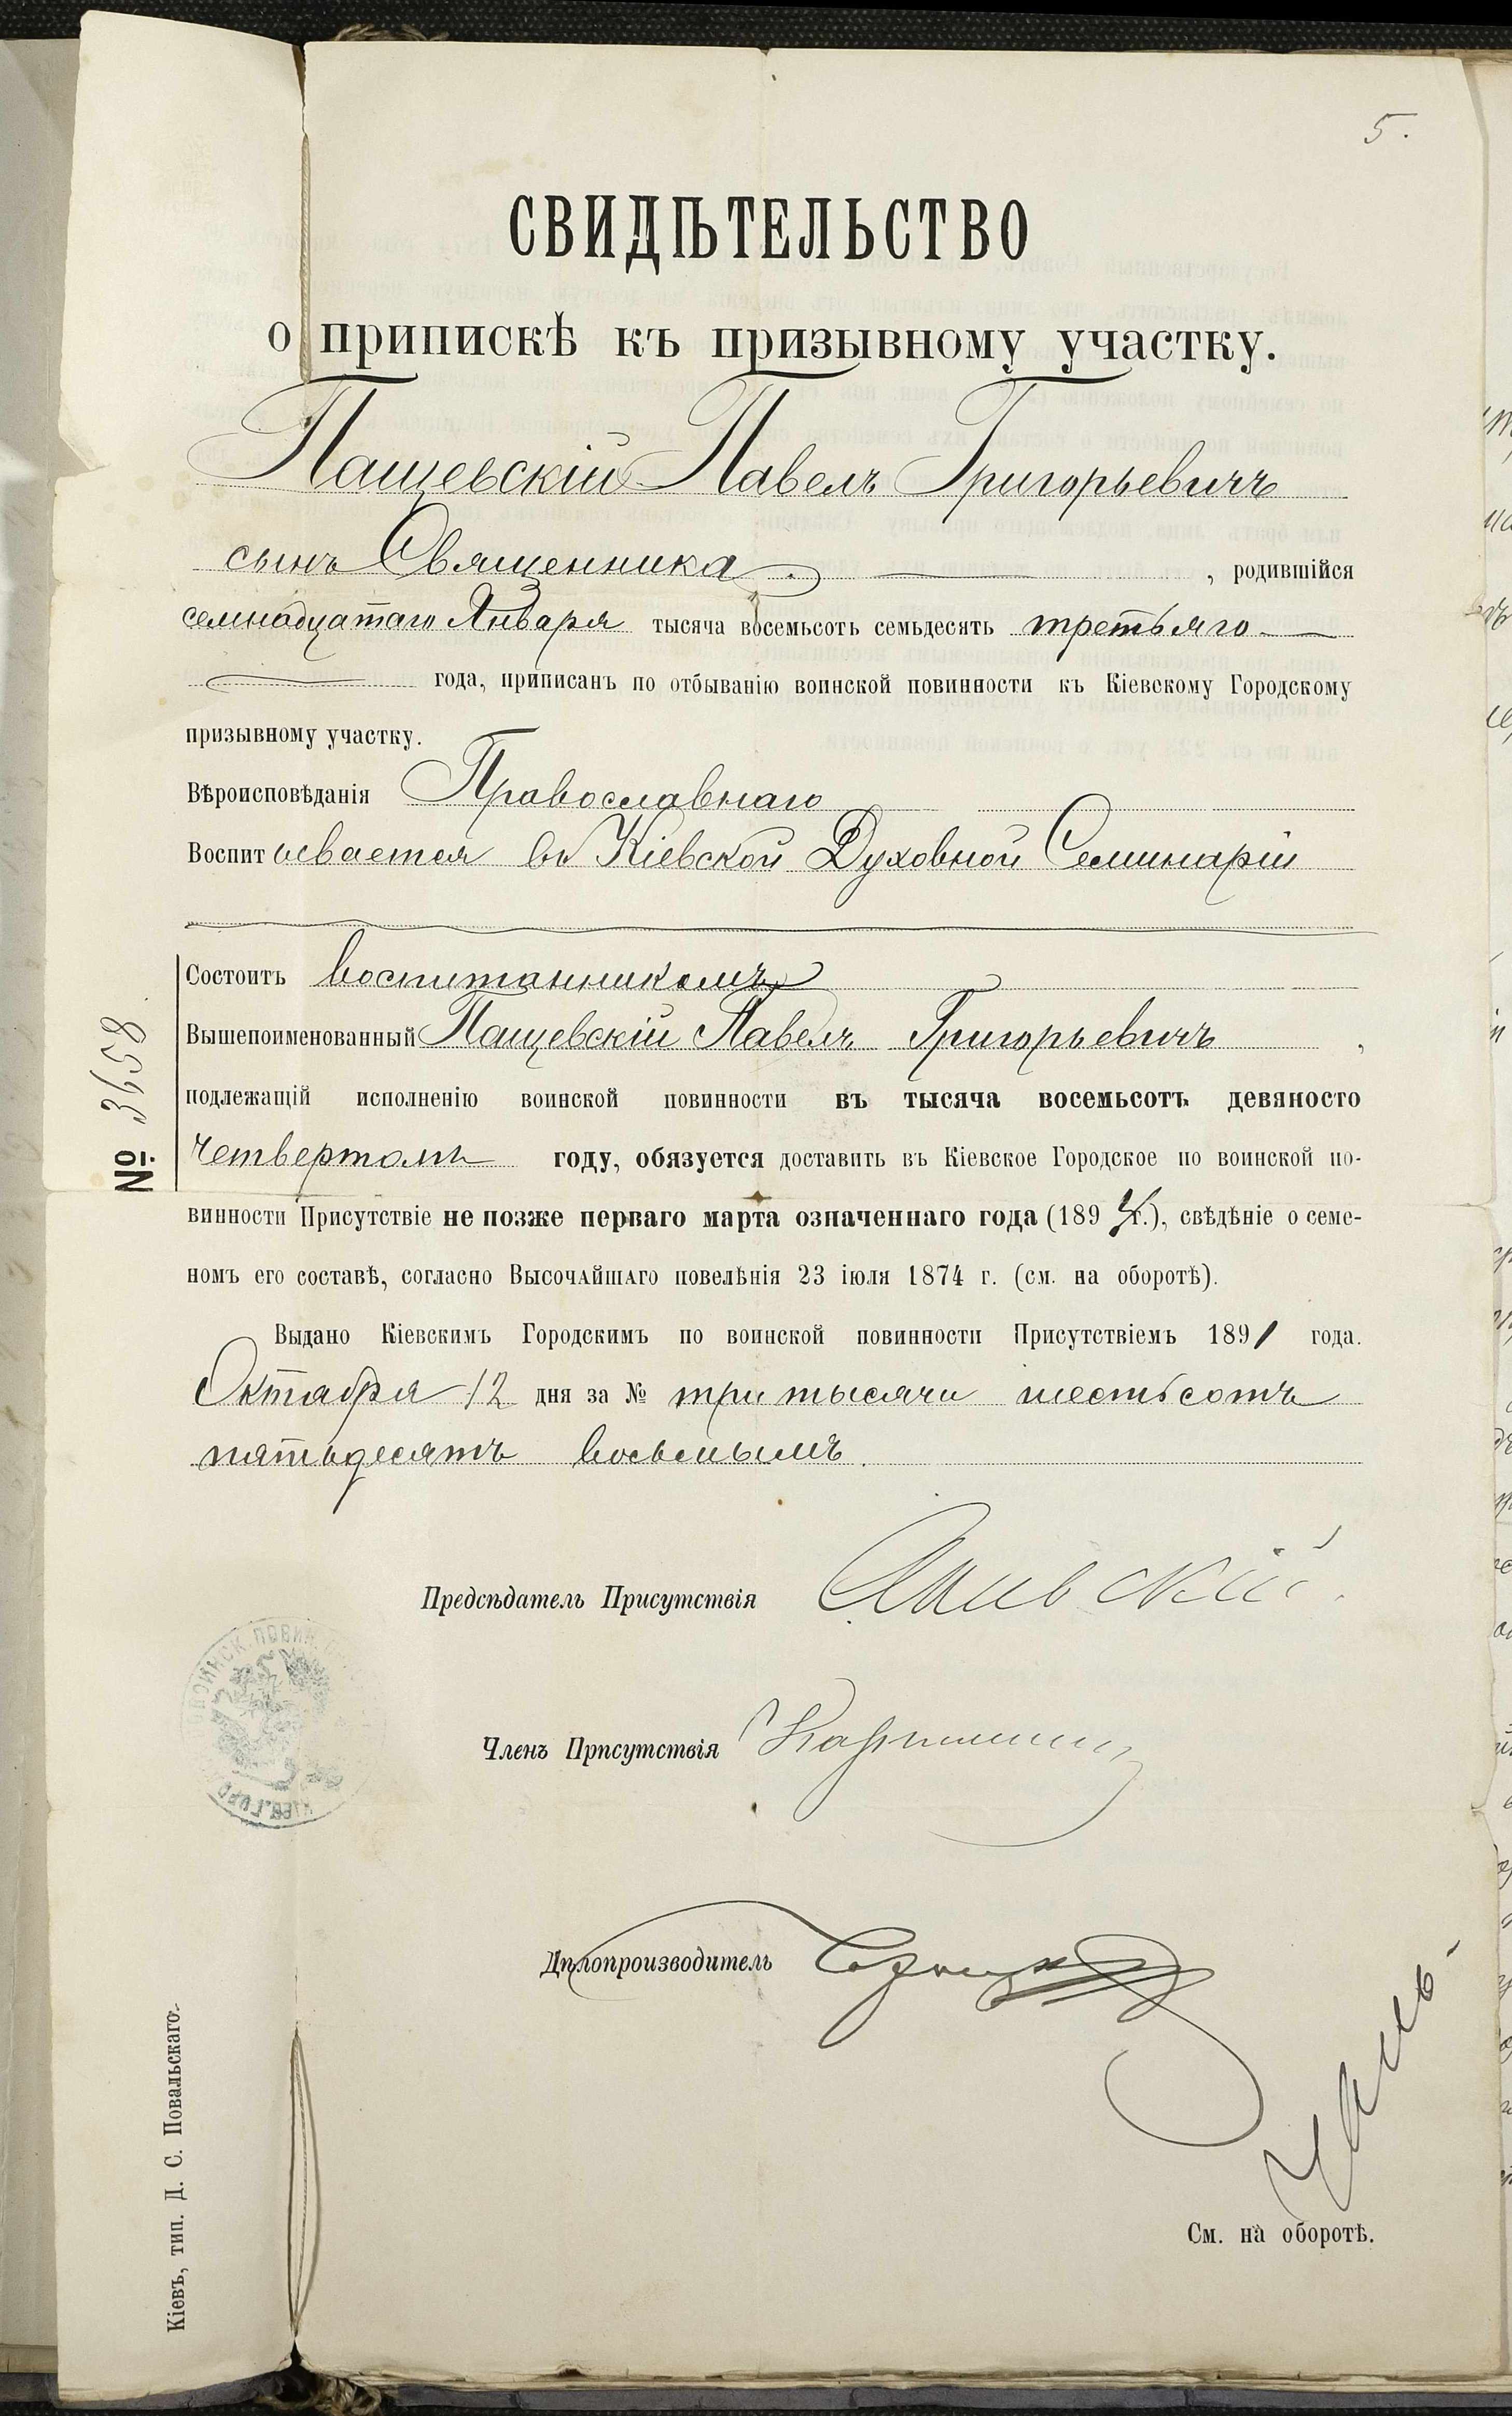 5.
СВИДѢТЕЛЬСТВО
о припискѣ къ призывному участку.
Пащевскій Павелъ Григорьевичъ
сынъ Священника. , родившійся
семнадцатаго Января тысяча восемьсотъ семьдесятъ третьяго
года, приписанъ по отбыванію воинской повинности къ Кіевскому Городскому
призывному участку.
Вѣроисповѣданія Православнаго
Воспитывается въ Кіевской Духовной Семинаріи
Состоитъ воспитанникомъ
Вышепоименованный Пащевскій Павелъ Григорьевичъ ,
подлежащій исполненію воинской повинности въ тысяча восемьсотъ девяносто
четвертомъ году, обязуется доставить въ Кіевское Городское по воинской по-
винности Присутствіе не позже перваго марта означеннаго года (1894 г.), свѣдѣніе о семе-
номъ его составѣ, согласно Высочайшаго повелѣнія 23 іюля 1874 г. (см. на оборотѣ).
№ 3658
Выдано Кіевскимъ Городскимъ по воинской повинности Присутствіемъ 1891 года.
Октября 12 дня за № три тысячи шестьсотъ
пятьдесятъ восьмымъ.
Предсѣдатель Присутствія
Членъ Присутствія
Дѣлопроизводитель
См. на оборотѣ.
Кіевъ, тип. Д. С. Повальскаго.